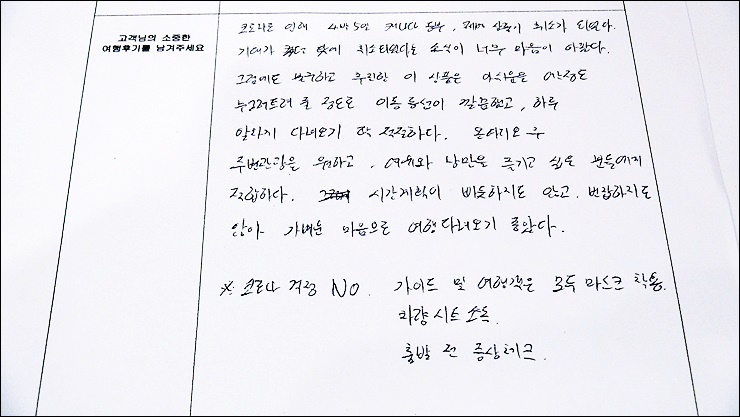 고객님의 소중한
여행후기를 남겨주세요
코로나로 인해 4박 5일 캐나다 동부, 상품이 취소가 되었다.
기대가 컸던 탓에 취소되었다는 소식이 너무 마음이 아팠다.
그럼에도 불구하고 우진한 이 상품은 아쉬움을 어느정도
누그러트려 줄 정도로 이동 동선이 깔끔했고, 하루
알차게 다녀오기 딱 적절하다. 온타리오 주
주변관광을 원하고, 여유와 낭만을 즐기고 싶은 분들에게
적합하다. 시간계획이 빠듯하지도 않고, 번잡하지도
않아 가벼운 마음으로 여행 다녀오기 좋았다.
※ 코로나 걱정 No. 가이드 및 여행객은 모두 마스크 착용.
차량 시트 소독.
출발 전 증상체크.